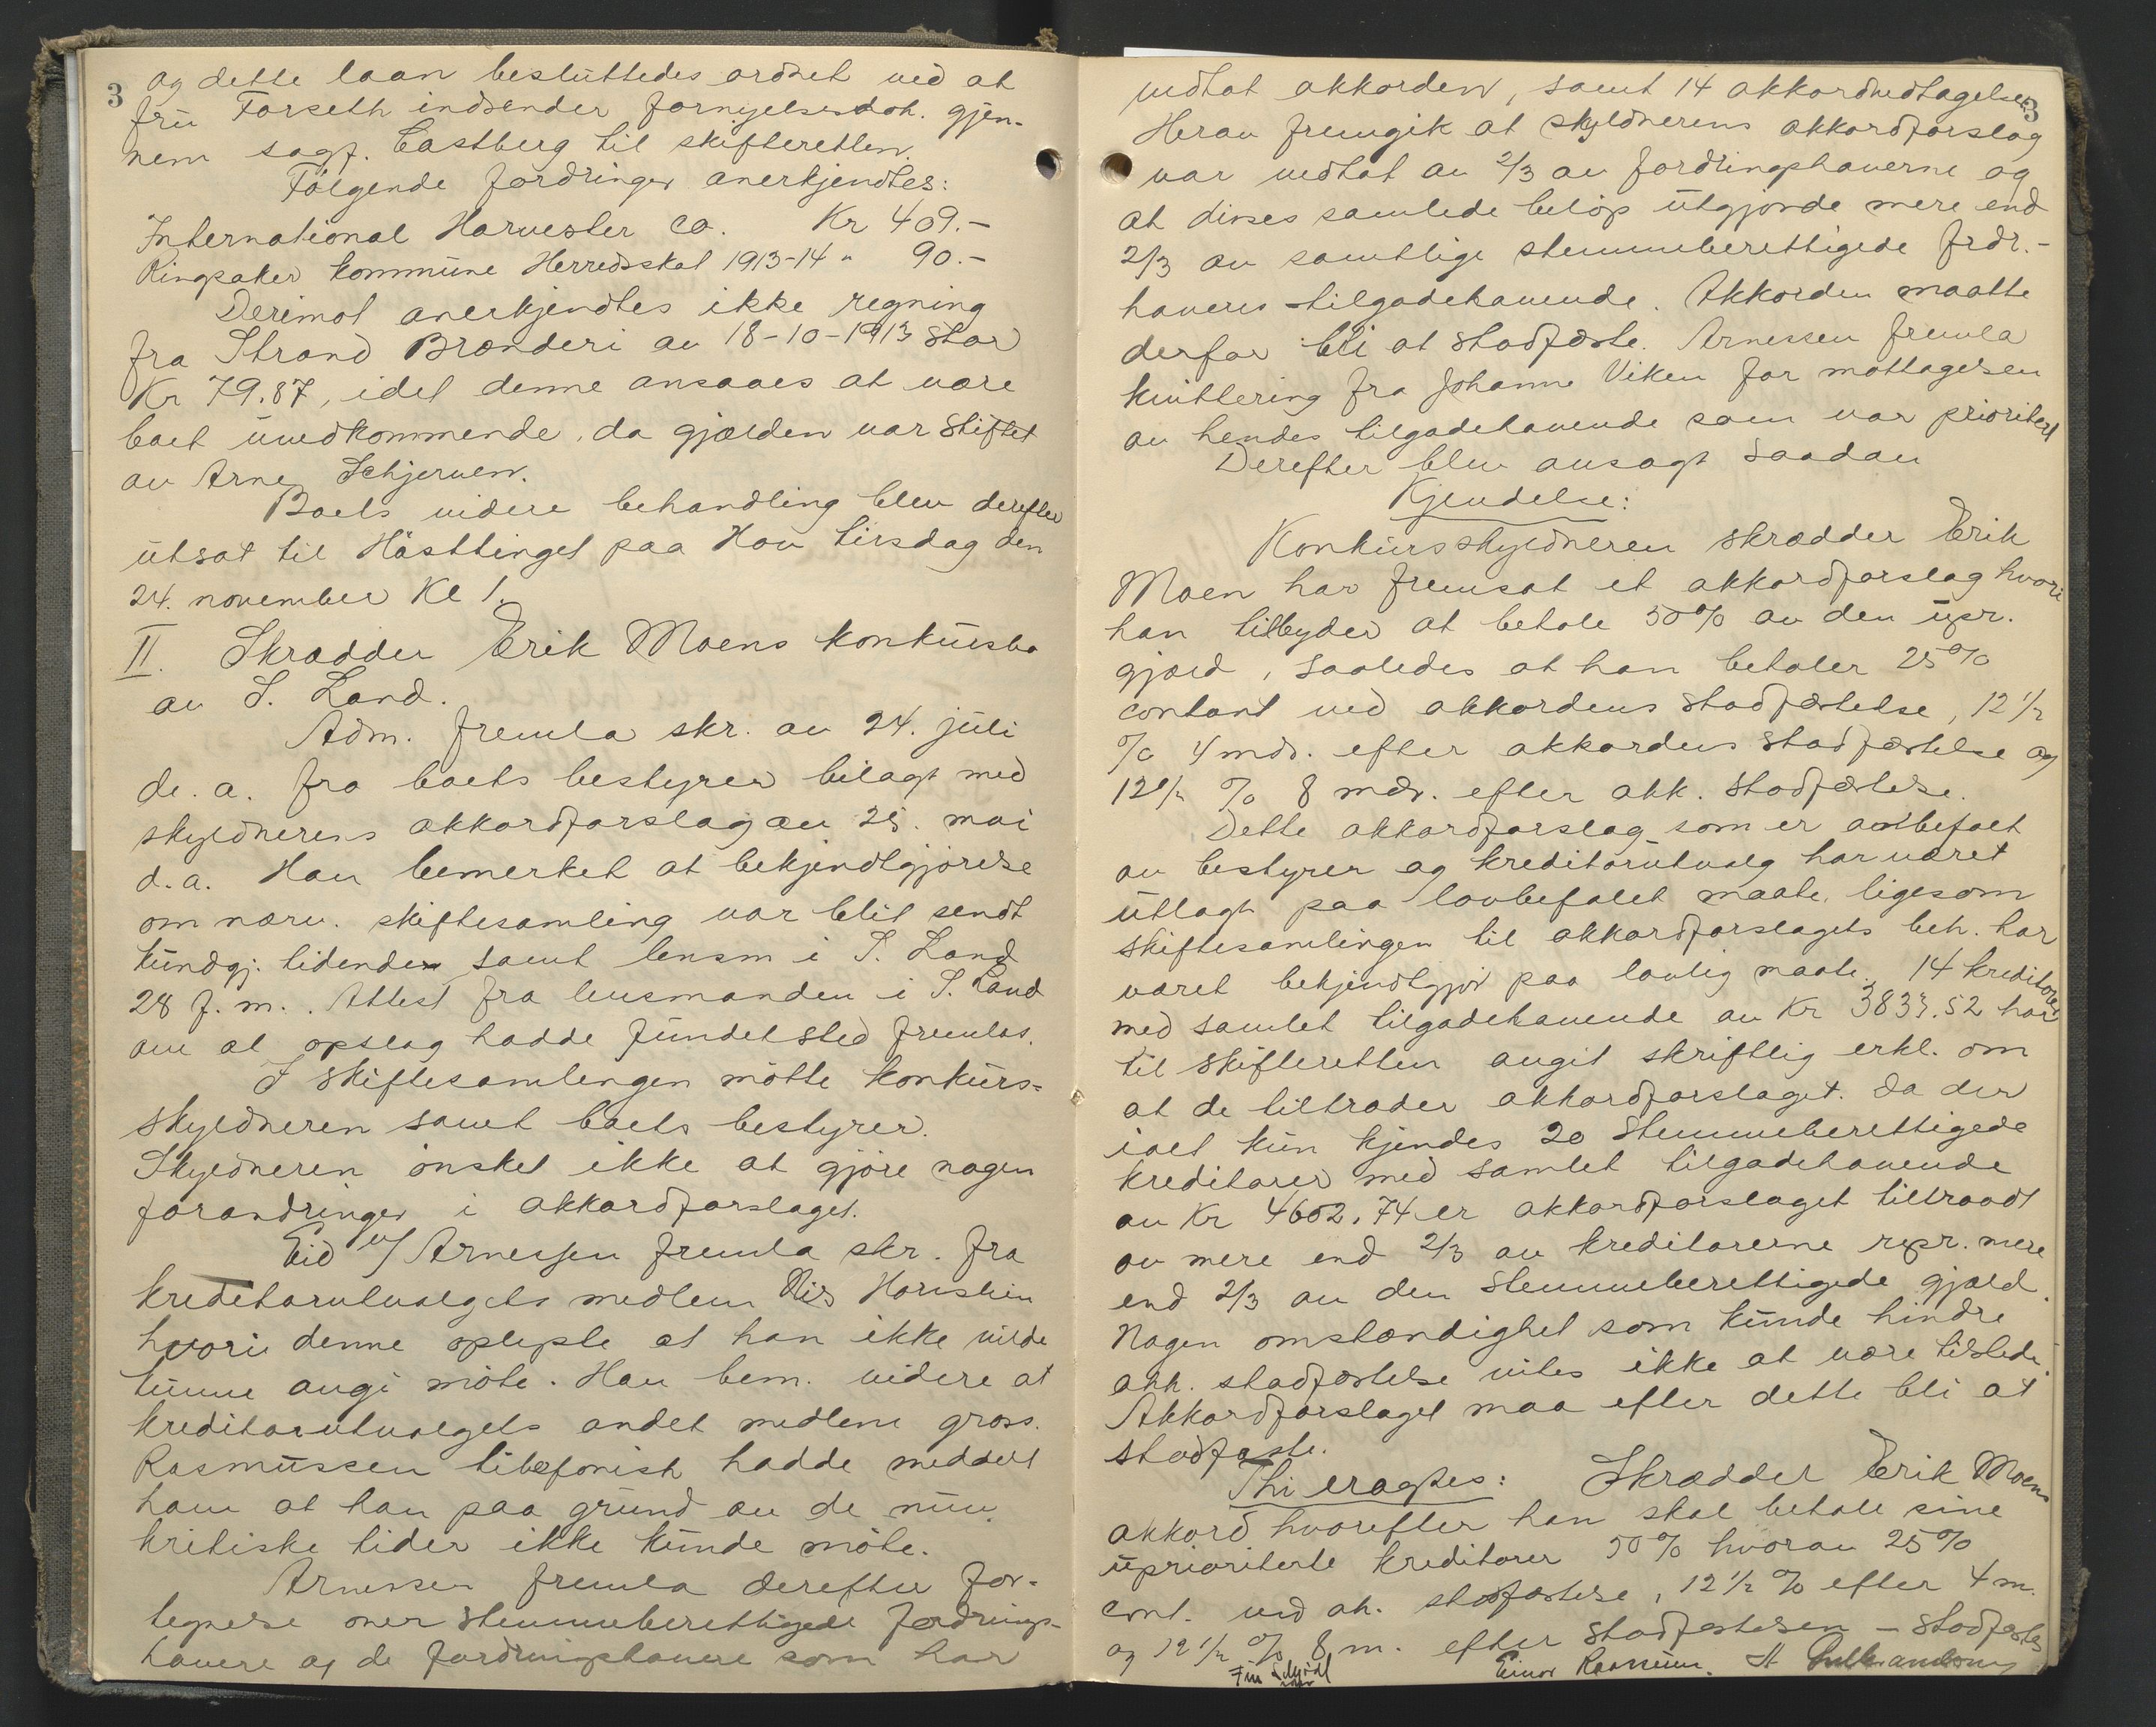 3
og dette laan besluttedes ordnet ved at
fru Forseth indsender fornyelsesdok. gjen-
nem sagf. Castberg til skifteretten.
Følgende fordringer anerkjendtes:
International Harvester Co. Kr 409.-
Ringsaker kommune Herredsskat 1913-14 " 90.-
Derimot anerkjendtes ikke regning
fra Strand Brænderi av 18-10-1913 stor
Kr 79.87, idet denne ansaaes at være
boet uvedkommende, da gjælden var stiftet
av Arne Schjerven.
Boets videre behandling blev derefter
utsat til Høsttinget paa Hov tirsdag den
24. november Kl 1.
II. Skrædder Erik Moens konkursbo
av S. Land.
Adm. fremla skr. av 24. juli
d. a. fra boets bestyrer bilagt med
skyldnerens akkordforslag av 25. mai
d. a. Han bemerket at bekjendtgjørelse
om nærv. skiftesamling var blit sendt
kundgj. tidende samt lensm i S. Land
28 f. m. Attest fra lensmanden i S. Land
om at opslag hadde fundet sted fremlas.
I skiftesamlingen møtte konkurs-
skyldneren samt boets bestyrer.
Skyldneren ønsket ikke at gjøre nogen
forandringer i akkordforslaget.
Eid v/ Arnessen fremla skr. fra
kreditorutvalgets medlem Nils Hornslien
hvori denne oplyste at han ikke vilde
kunne avgi møte. Han bem. videre at
kreditorutvalgets andet medlem gross.
Rasmussen telefonisk hadde meddelt
ham at han paa grund av de nuv.
kritiske tider ikke kunde møte.
Arnessen fremla derefter for-
tegnelse over stemmeberettigede fordrings-
havere og de fordringshavere som har
3
vedtat akkorden, samt 14 akkordvedtagelser
Herav fremgik at skyldnerens akkordforslag
var vedtat av 2/3 av fordringshaverne og
at disses samlede beløp utgjorde mere end
2/3 av samtlige stemmeberettigede frdr.-
haveres tilgodehavende. Akkorden maatte
derfor bli at stadfæste. Arnessen fremla
kvittering fra Johanne Viken for mottagelsen
av hendes tilgodehavende som var prioritert
Derefter blev avsagt saadan
Kjendelse:
Konkursskyldneren skrædder Erik
Moen har fremsat et akkordforslag hvori
han tilbyder at betale 50% av den upr.
gjæld, saaledes at han betaler 25%
contant ved akkordens stadfæstelse, 12 1/2
% 4 mdr. efter akkordens stadfæstelse og
12 1/2 % 8 mdr. efter akk. stadfæstelse.
Dette akkordforslag som er anbefalt
av bestyrer og kreditorutvalg har været
utlagt paa lovbefalet maate, ligesom
skiftesamlingen til akkordforslagets beh. har
været bekjendtgjort paa lovlig maate. 14 kreditorer
med samlet tilgodehavende av Kr 3833.52 har
til skifteretten avgit skriftlig erkl. om
at de tiltræder akkordforslaget. Da der
ialt kun kjendes 20 stemmeberettigede
kreditorer med samlet tilgodehavende
av Kr 4602.74 er akkordforslaget tiltraadt
av mere end 2/3 av kreditorerne repr. mere
end 2/3 av den stemmeberettigede gjæld.
Nogen omstændighet som kunde hindre
akk. stadfæstelse vites ikke at være tilstede.
Akkordforslaget maa efter dette bli at
stadfæste.
Thi eragtes: Skrædder Erik Moens
akkord hvorefter han skal betale sine
uprioriterte kreditorer 50% hvorav 25%
cont. ved ak. stadfæstelse, 12 1/2 % efter 4 m.
og 12 1/2 % 8 m. efter stadfæstelsen - stadfæstes
Einar Rasmussen.